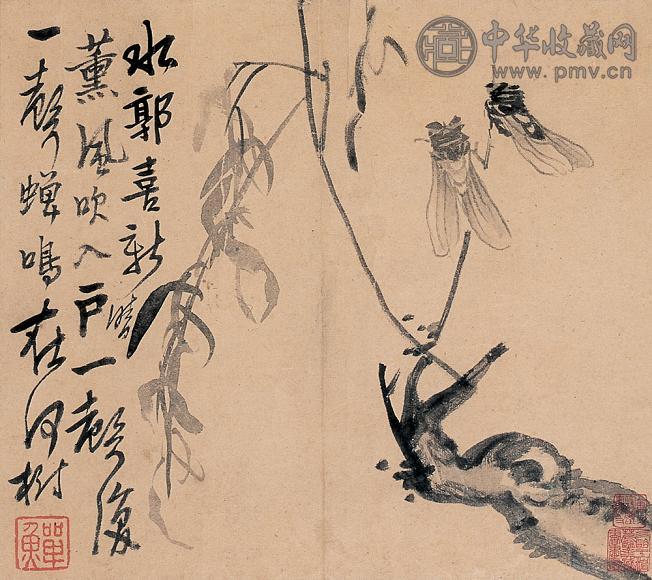 水郭喜新晴
薰風吹入戶一聲復
一聲蟬鳴在何樹
鱓
中华收藏网
www.pmv.cn